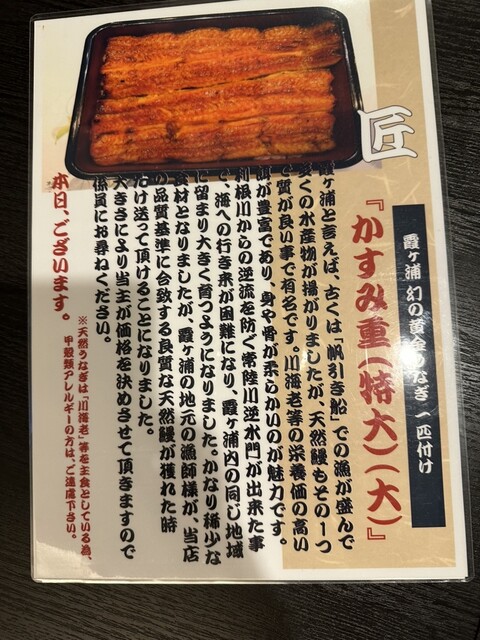 匠
霞ヶ浦 幻の黄金うなぎ 一匹付け
『かすみ重(特大)(大)』
霞ヶ浦と言えば、古くは「帆引き船」での漁が盛んで
多くの水産物が揚がりましたが、天然鰻もその一つ
で質が良い事で有名です。川海老等の栄養価の高い
餌が豊富であり、身や骨が柔らかいのが魅力です。
利根川からの逆流を防ぐ常陸川逆水門が出来た事
で、海への行き来が困難になり、霞ヶ浦内の同じ地域
に留まり大きく育つようになりました。かなり稀少な
食材となりましたが、霞ヶ浦の地元の漁師様が 当店
の品質基準に合致する良質な天然鰻が獲れた時
だけ送って頂けることになりました。
大きさにより当主が価格を決めさせて頂きますので
係員にお尋ねください。
本日、ございます。
※天然うなぎは「川海老」等を主食としている為、
甲殻類アレルギーの方は、ご遠慮下さい。